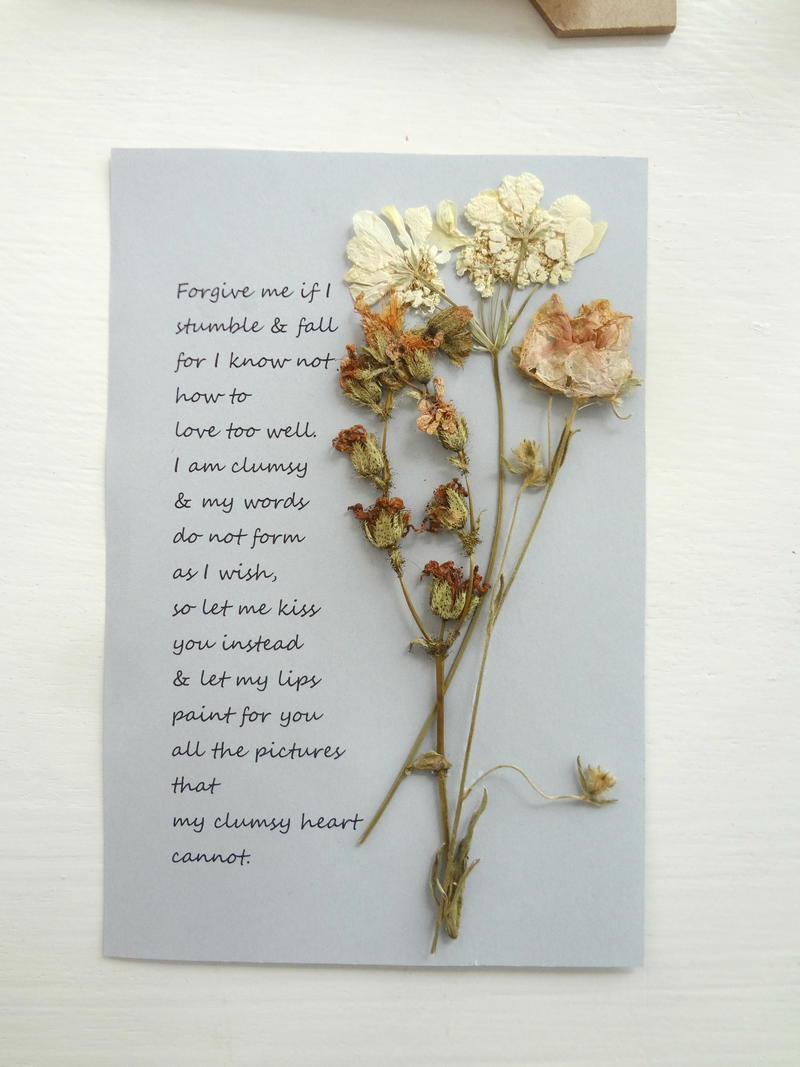 Forgive me if I
stumble & fall
for I know not
how to
love too well.
I am clumsy
& my words
do not form
as I wish,
so let me kiss
you instead
& let my lips
paint for you
all the pictures
that
my clumsy heart
cannot.